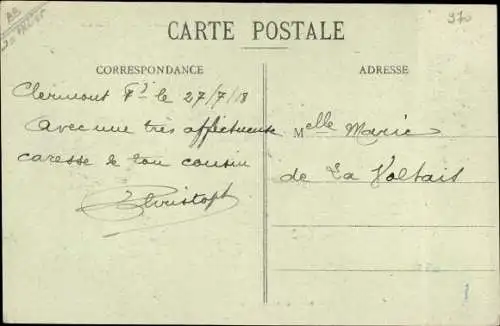 370
CARTE POSTALE
CORRESPONDANCE
ADRESSE
Clermont Fd le 27/7/18
Avec une très affectueuse
caresse de ton cousin
Christoph
Melle Marie
de La Voltais